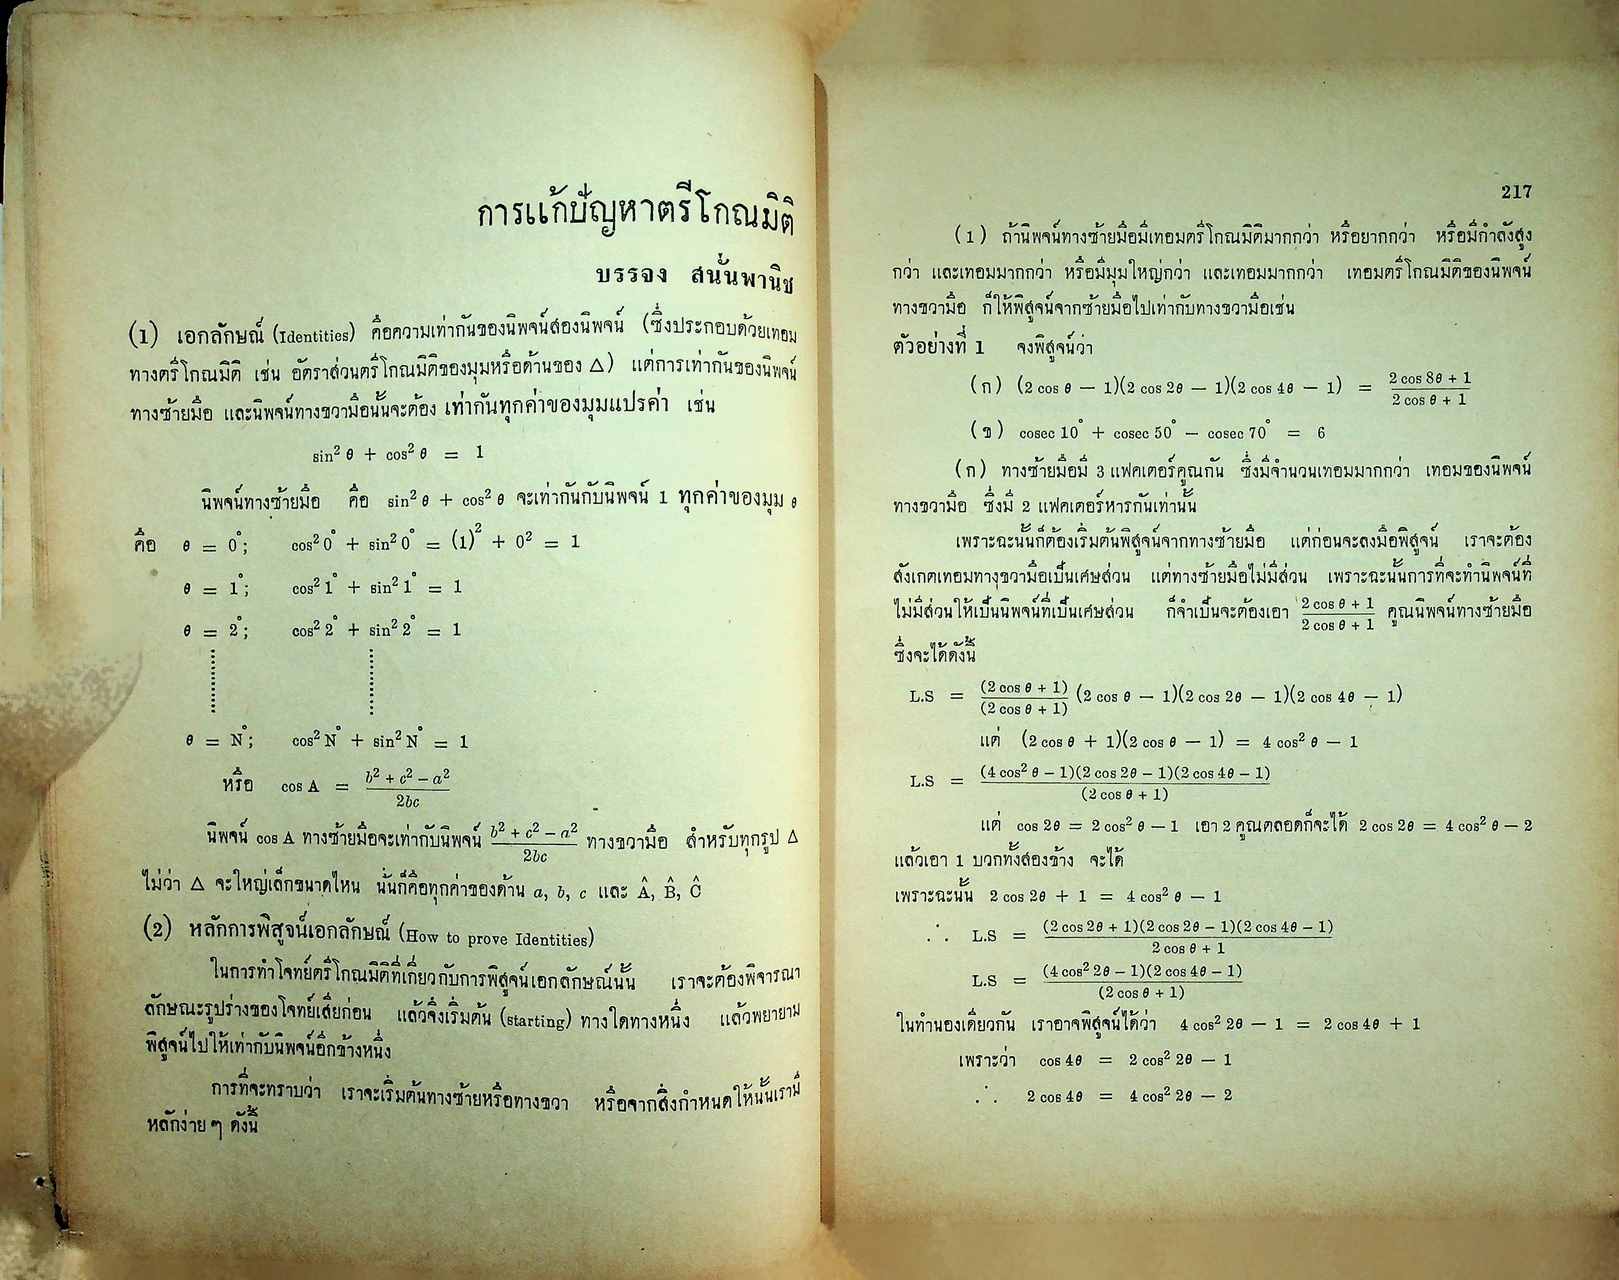 การแก้ปัญหาตรีโกณมิติ
บรรจง สนั่นพานิช
(1) เอกลักษณ์ (Identities) คือความเท่ากันของนิพจน์สองนิพจน์ (ซึ่งประกอบด้วยเทอม
ทางตรีโกณมิติ เช่น อัตราส่วนตรีโกณมิติของมุมหรือด้านของ Δ) แต่การเท่ากันของนิพจน์
ทางซ้ายมือ และนิพจน์ทางขวามือนั้นจะต้อง เท่ากันทุกค่าของมุมแปรค่า เช่น
sin² θ + cos² θ = 1
นิพจน์ทางซ้ายมือ คือ sin² θ + cos² θ จะเท่ากันกับนิพจน์ 1 ทุกค่าของมุม θ
คือ θ = 0°; cos² 0° + sin² 0° = (1)² + 0² = 1
θ = 1°; cos² 1° + sin² 1° = 1
θ = 2°; cos² 2° + sin² 2° = 1
θ = N°; cos² N° + sin² N° = 1
หรือ cos A = (b² + c² − a²)/2bc
นิพจน์ cos A ทางซ้ายมือจะเท่ากับนิพจน์ (b² + c² − a²)/2bc ทางขวามือ สำหรับทุกรูป Δ
ไม่ว่า Δ จะใหญ่เล็กขนาดไหน นั่นก็คือทุกค่าของด้าน a, b, c และ Â, B̂, Ĉ
(2) หลักการพิสูจน์เอกลักษณ์ (How to prove Identities)
ในการทำโจทย์ตรีโกณมิติที่เกี่ยวกับการพิสูจน์เอกลักษณ์นั้น เราจะต้องพิจารณา
ลักษณะรูปร่างของโจทย์เสียก่อน แล้วจึงเริ่มต้น (starting) ทางใดทางหนึ่ง แล้วพยายาม
พิสูจน์ไปให้เท่ากับนิพจน์อีกข้างหนึ่ง
การที่จะทราบว่า เราจะเริ่มต้นทางซ้ายหรือทางขวา หรือจากสิ่งกำหนดให้นั้นเรามี
หลักง่าย ๆ ดังนี้
217
(1) ถ้านิพจน์ทางซ้ายมือมีเทอมตรีโกณมิติมากกว่า หรือยากกว่า หรือมีกำลังสูง
กว่า และเทอมมากกว่า หรือมีมุมใหญ่กว่า และเทอมมากกว่า เทอมตรีโกณมิติของนิพจน์
ทางขวามือ ก็ให้พิสูจน์จากซ้ายมือไปเท่ากับทางขวามือเช่น
ตัวอย่างที่ 1 จงพิสูจน์ว่า
(ก) (2 cos θ − 1)(2 cos 2θ − 1)(2 cos 4θ − 1) = (2 cos 8θ + 1)/(2 cos θ + 1)
(ข) cosec 10° + cosec 50° − cosec 70° = 6
(ก) ทางซ้ายมือมี 3 แฟคเตอร์คูณกัน ซึ่งมีจำนวนเทอมมากกว่า เทอมของนิพจน์
ทางขวามือ ซึ่งมี 2 แฟคเตอร์หารกันเท่านั้น
เพราะฉะนั้นก็ต้องเริ่มต้นพิสูจน์จากทางซ้ายมือ แต่ก่อนจะลงมือพิสูจน์ เราจะต้อง
สังเกตเทอมทางขวามือเป็นเศษส่วน แต่ทางซ้ายมือไม่มีส่วน เพราะฉะนั้นการที่จะทำนิพจน์ที่
ไม่มีส่วนให้เป็นนิพจน์ที่เป็นเศษส่วน ก็จำเป็นจะต้องเอา (2 cos θ + 1)/(2 cos θ + 1) คูณนิพจน์ทางซ้ายมือ
ซึ่งจะได้ดังนี้
L.S = (2 cos θ + 1)/(2 cos θ + 1) (2 cos θ − 1)(2 cos 2θ − 1)(2 cos 4θ − 1)
แต่ (2 cos θ + 1)(2 cos θ − 1) = 4 cos² θ − 1
L.S = (4 cos² θ − 1)(2 cos 2θ − 1)(2 cos 4θ − 1)/(2 cos θ + 1)
แต่ cos 2θ = 2 cos² θ − 1 เอา 2 คูณตลอดก็จะได้ 2 cos 2θ = 4 cos² θ − 2
แล้วเอา 1 บวกทั้งสองข้าง จะได้
เพราะฉะนั้น 2 cos 2θ + 1 = 4 cos² θ − 1
∴ L.S = (2 cos 2θ + 1)(2 cos 2θ − 1)(2 cos 4θ − 1)/2 cos θ + 1
L.S = (4 cos² 2θ − 1)(2 cos 4θ − 1)/(2 cos θ + 1)
ในทำนองเดียวกัน เราอาจพิสูจน์ได้ว่า 4 cos² 2θ − 1 = 2 cos 4θ + 1
เพราะว่า cos 4θ = 2 cos² 2θ − 1
∴ 2 cos 4θ = 4 cos² 2θ − 2